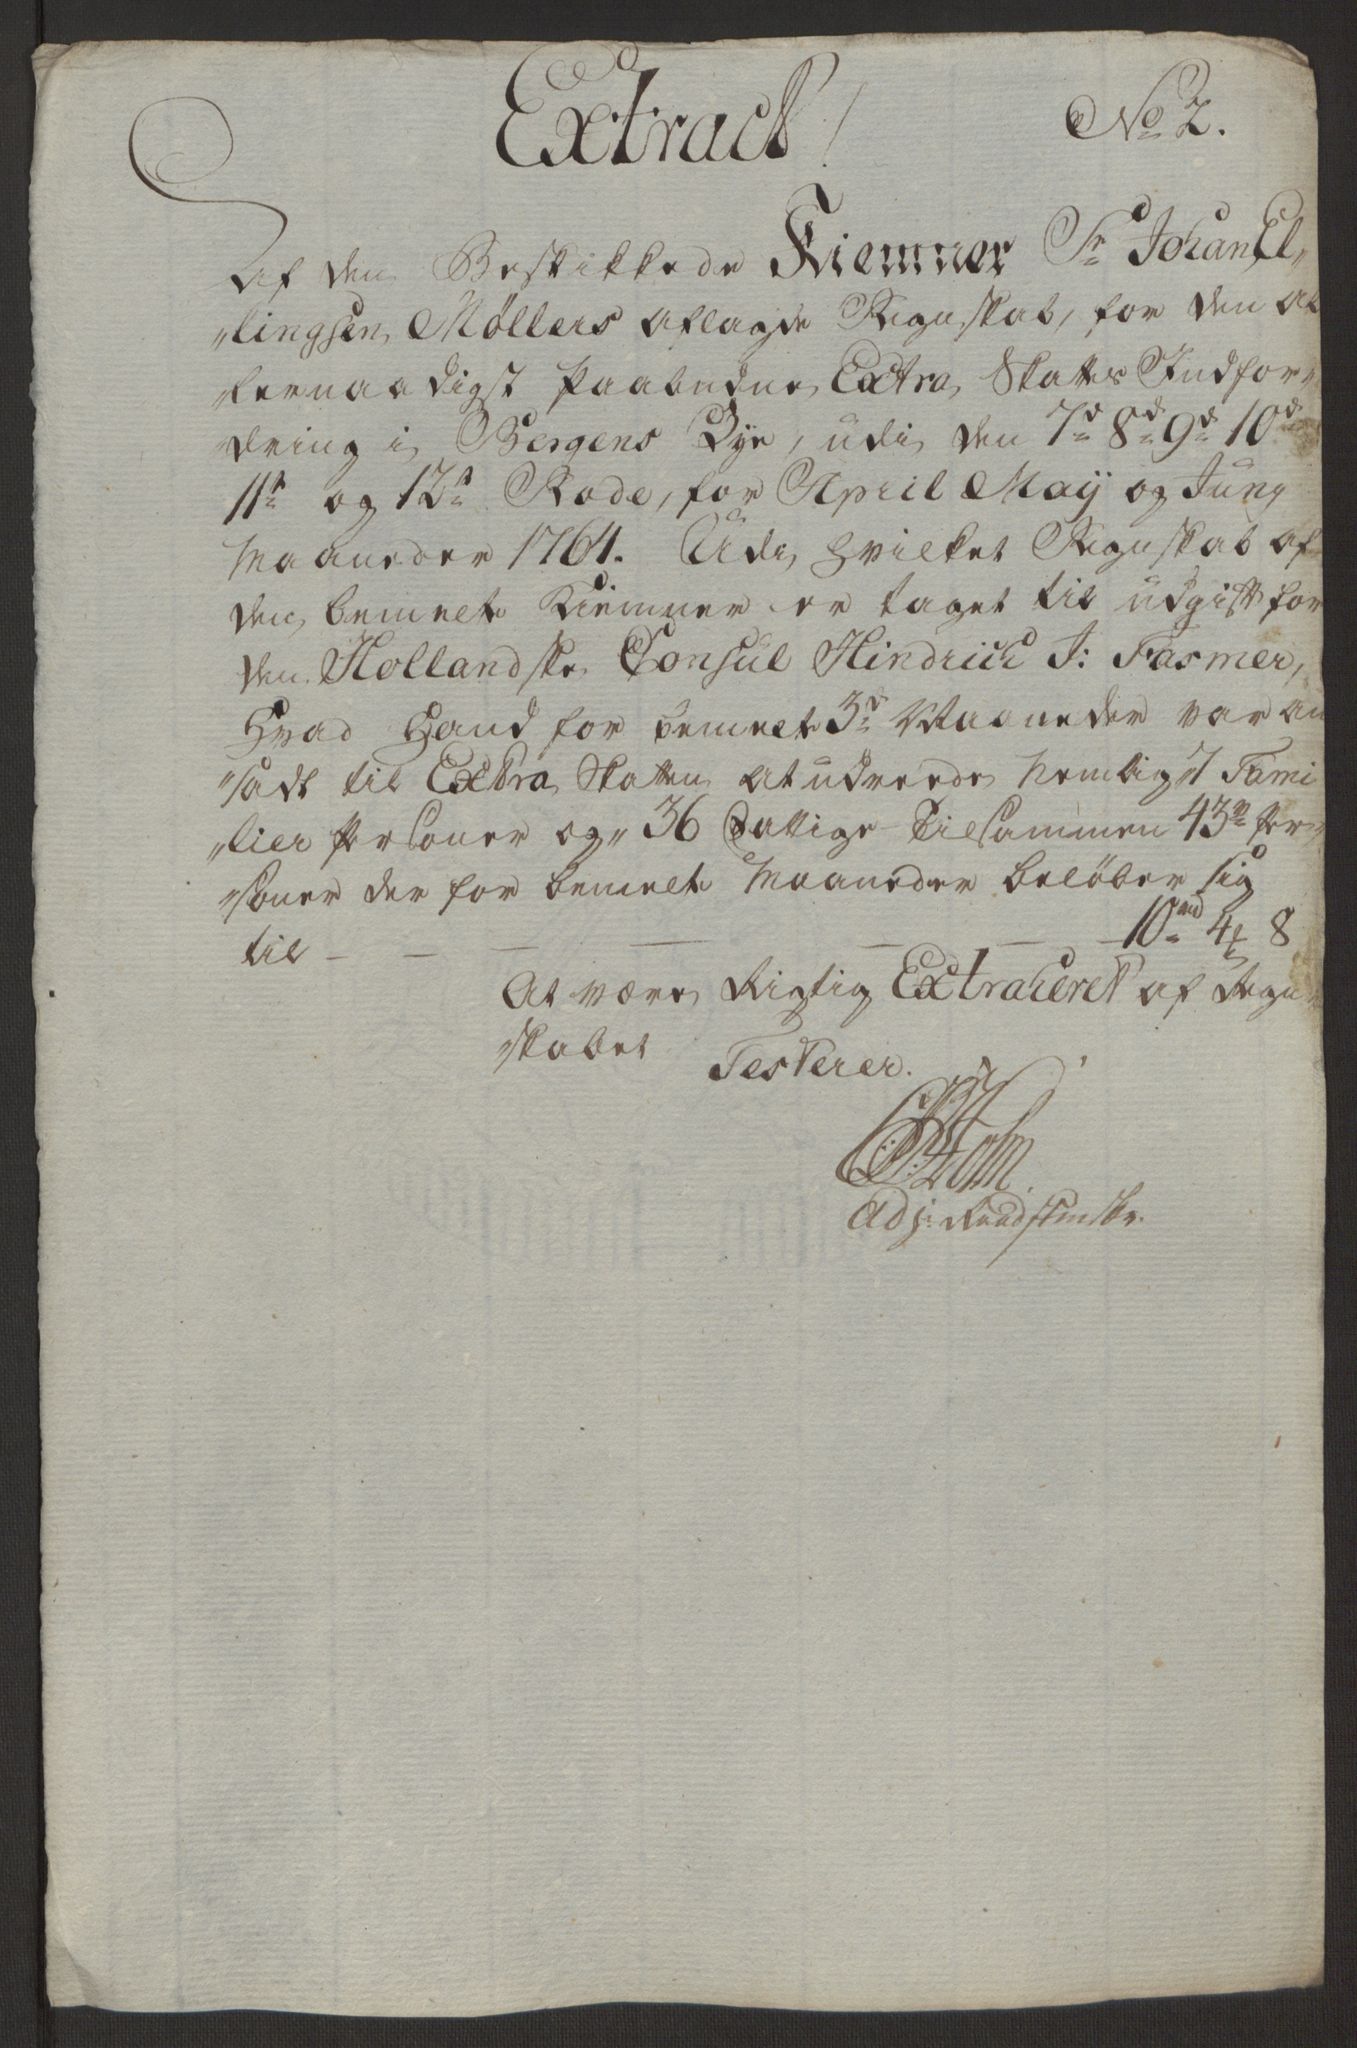 Extract!
No 2.
Af den Beskikkede Kiemner Sr Johan El„
„lingsen Møllers aflagde Regnskab, for den al
lernaadigst paabudne Extra Skatts Indfor„
dring i Bergens Bye, udi den 7d 8d 9d 10d
11te og 12te Rode, for April May og Juny
Maaneder 1764. Udi hvilket Regnskab af
den bemelte Kiemner er taget til udgift for
den Hollandske Consul Hindrich J: Fasmer,
Hvad Hand for bemelte 3de Maaneder var an
„sadt til Extra Skatten at udreede, nemlig 7 Fami
„lier Personer og 36 Fattige tilsammen 43 Per„
„soner der for bemelte Maaneder beløber sig
til — — — — — — 10rd 4 ß 8
At være Rigtig Extraheret af Regn„
„skabet Testerer.
Holm
Adj: Raadstueskr.